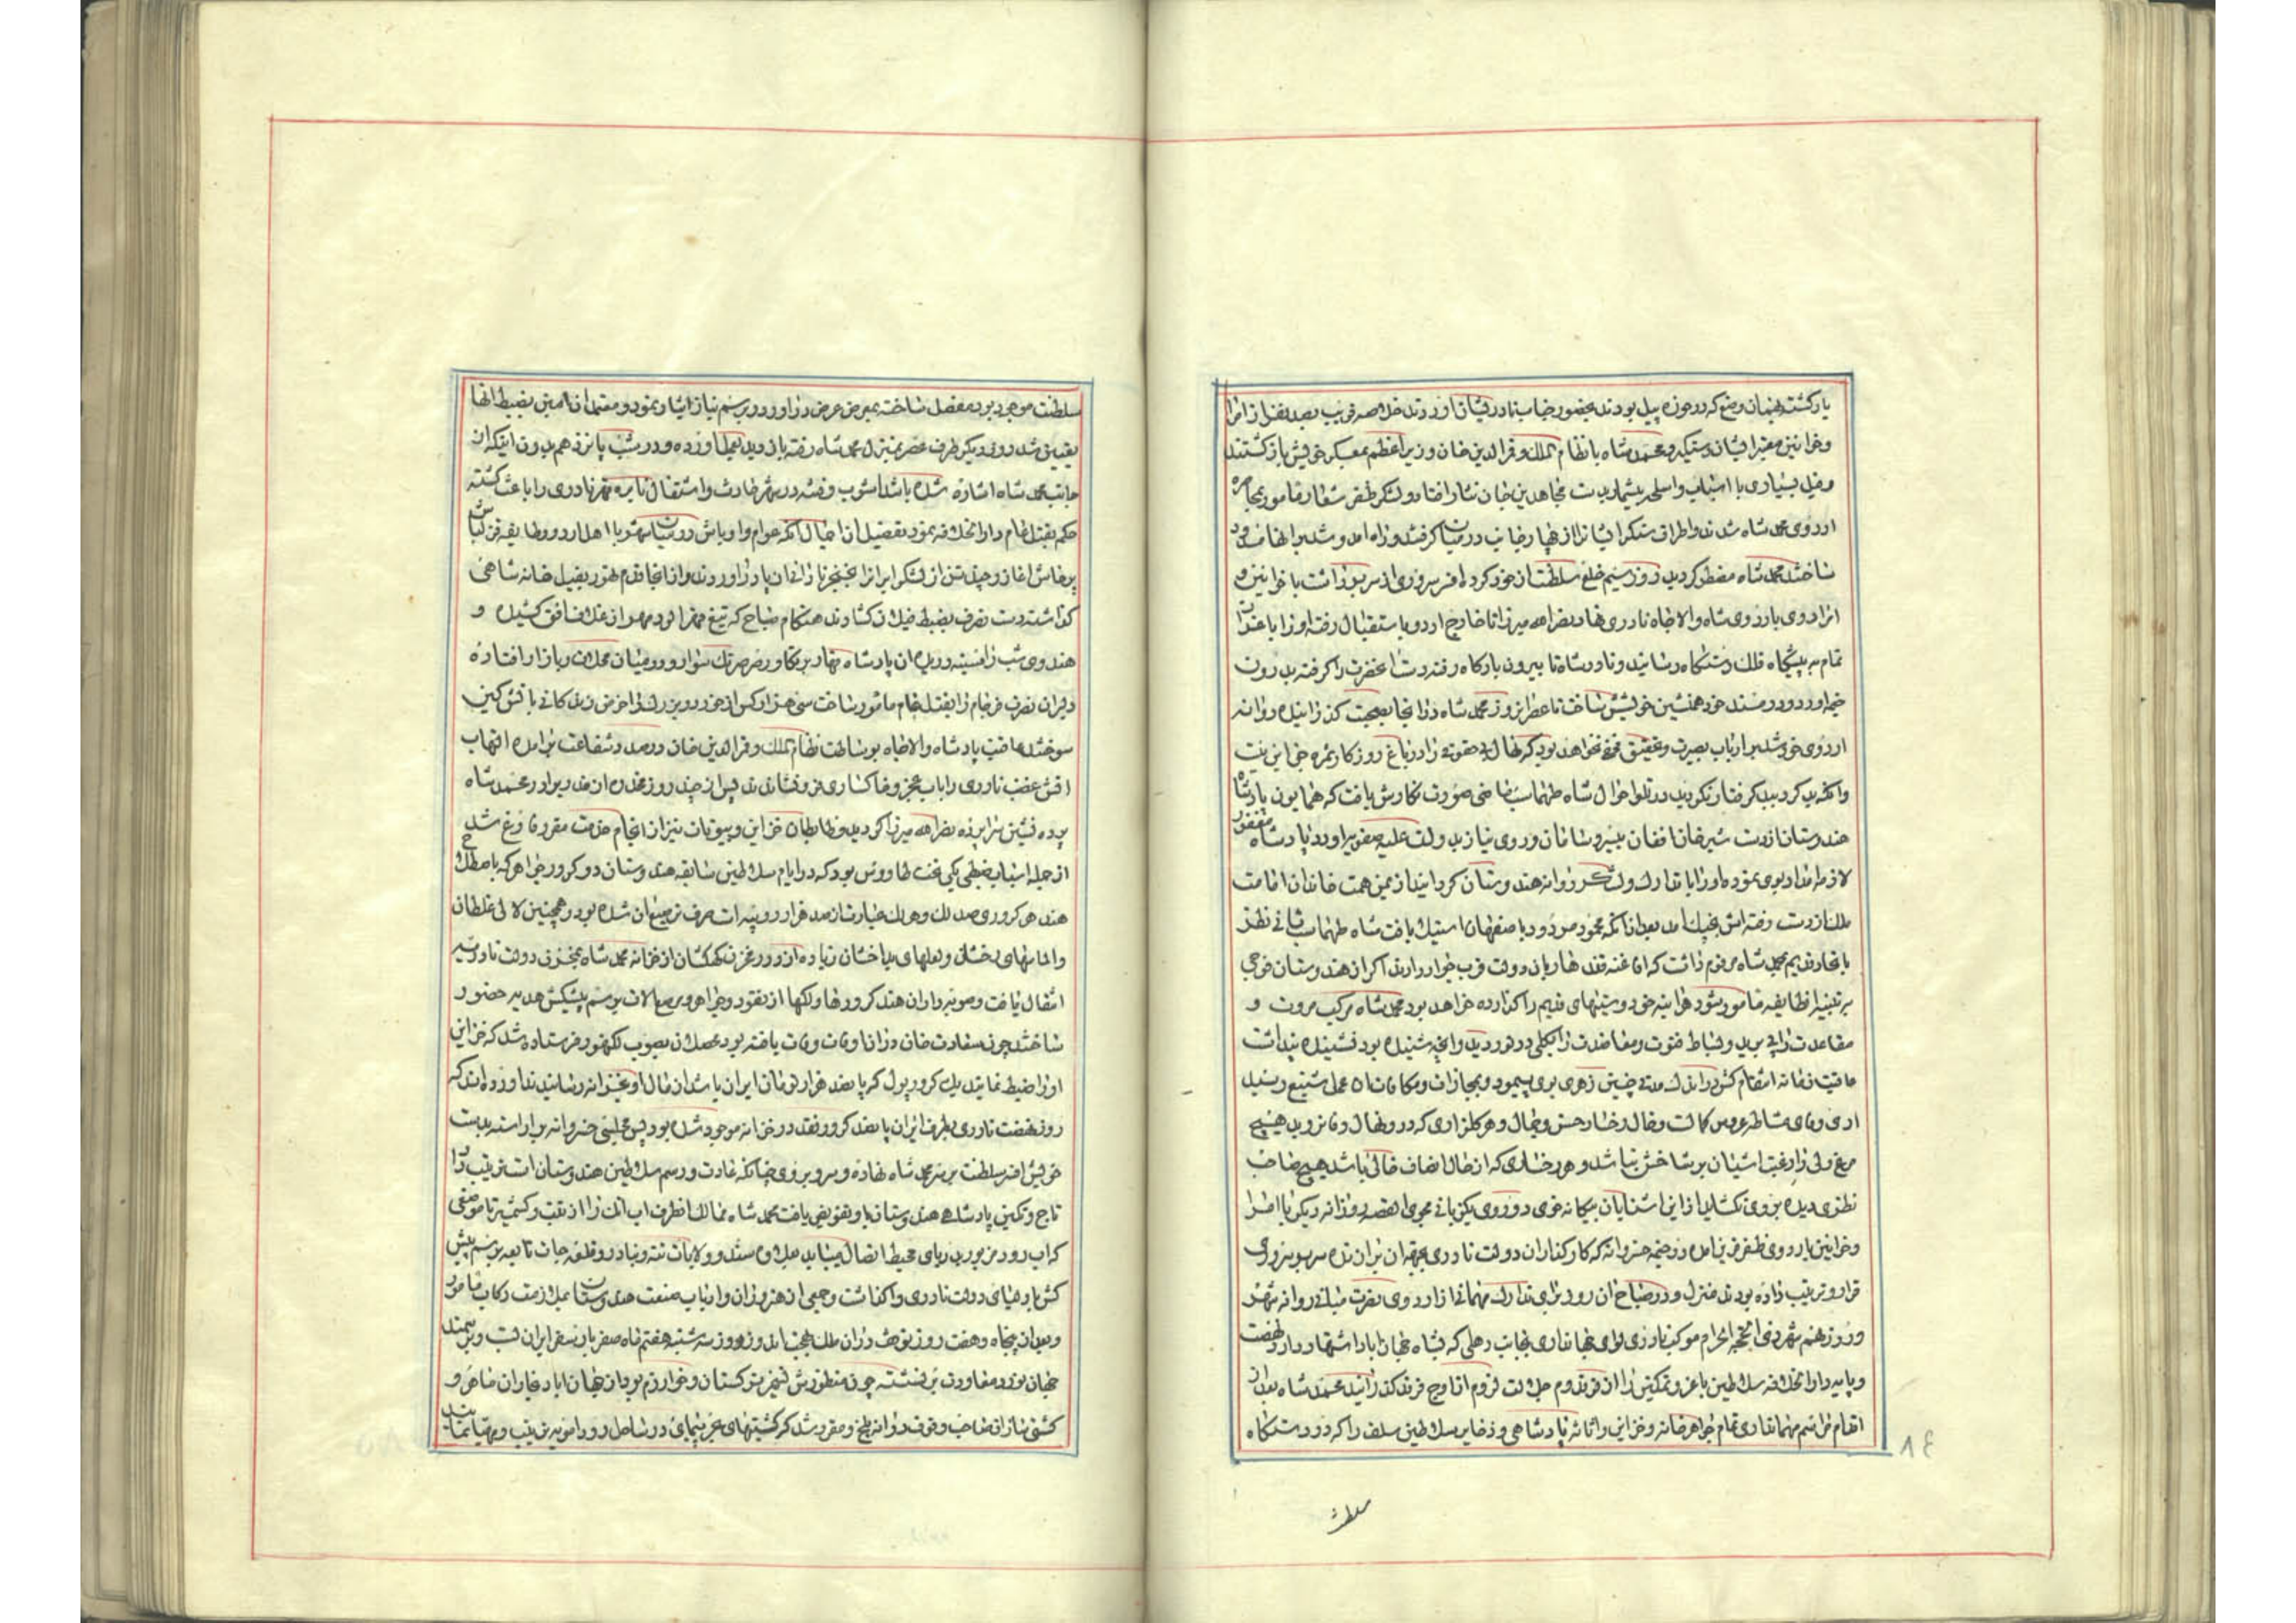 یار کشته بهمان وضع که در حوزه پیل بودند بحضور رضایت نادر قیان آوردند خلاصه قریب بصد نفر از امرا
و خوانین معتبر ایشان دستگیر و محمد شاه با نظام الملک و قمرالدین خان وزیر اعظم بمعسکر خویش بازگشتند
و فیل بسیاری با اسباب و اسلحه بیشمار بدست مجاهدین جان نثار افتاد و لشکر ظفر شعار مامور بمحاصره
اردوی محمد شاه شدند و اطراف معسکر ایشان را از چهار جانب در میان گرفته و راه آمد و شد بر آنها مسدود
ساختند محمد شاه مضطر گردیده روز سیم خلع سلطنت از خود کرده افسر سروری از سر برداشت با خوانین و
امرا روی باردوی شاه والاجاه نادری نهاد نصرالله میرزا تا خارج اردو باستقبال رفته او را با عزت
تمام به پیشگاه فلک دستگاه رسانید و نادرشاه تا بیرون بارگاه رفته دست اعلیحضرت را گرفته بدرون
خیمه آورد و در مسند خود همنشین خویش ساخت تا عصر آنروز محمد شاه در آنجا بصحبت گذرانیده روانه
اردوی خود شد بر ارباب بصیرت و تحقیق مخفی نخواهد بود که نهال بی حقوقی را در باغ روزگار ثمره جز این نیست
و آنکه بد کرد ببد گرفتار گردید در تلو احوال شاه طهماسب ماضی صورت نگارش یافت که همایون پادشاه
هندوستان از دست شیرخان افغان بیسر و سامان و روی نیاز بدولت علیه صفویه آورد پادشاه مغفور
لازمه امداد بوی نموده او را با تدارک و لشکر روانه هندوستان گردانید از یمن همت خاندان امامت
ملک از دست رفته اش بچنگ آمد بعد از آنکه محمود مردود باصفهان استیلا یافت شاه طهماسب ثانی نظر
باتحاد قدیم محمد شاه مرقوم داشت که افاغنه قندهار باین دولت قرب جوار دارند اگر از هندوستان فوجی
بر تنبیه آنطایفه مامور شود هر آینه حق دوستیهای قدیم را گذارده خواهد بود محمد شاه مرکب مروت و
مساعدت را پی برید و بساط فتوت و معاضدت را بکلی در نوردید و آنچه شنیده بود نشنیده پنداشت
عاقبت زمانه انتقام کش در اندک مدتی چنین زهری بوی پیمود و بمجازات و مکافات آن عمل شنیع رسید
آری وفای مشاطه عروس کمالست و خال رخسار حسن و جمال و هر گلزاری که در و نهال وفا نروید هیچ
مرغ دلی را رغبت آشیان بر شاخش نباشد و هر رخساری که از خال انصاف خالی باشد هیچ صاحب
نظری دیده بروی نگشاید از این آشنایان بیگانه خوی دوروی یکزبانی مجوی القصه روز آنروز دیگر با امرا
و خوانین باردوی ظفر قرین آمده در خیمه خسروانه که کارکنان دولت نادری بجهة آن برآن تده سریر سروری
قرار و ترتیب داده بودند منزل و در صباح آن روز برای تدارک مهمانی از اردوی نصرت مبانی روانه شهر
و روز نهم شهر ذی الحجة الحرام موکب نادری لوای جهانداری بجانب دهلی که بشاه جهان آباد اشتهار دارد نهضت
و باین دارالخلافه سلاطین با عز و تمکین را از فر قدوم جلالت لزوم تا اوج فرقد گذرانید محمد شاه بعد از
اتمام مراسم مهمانداری تمام جواهرخانه و خزاین و اثاثه پادشاهی و ذخایر سلاطین سلف را که در دستگاه
سلطنت
٨٤
سلطنت موجود بود مفصل ساخته بمعرض عرض در آورد و برسم نیاز ایثار نمود و معتمدان امین بضبط آنها
تعیین شد روز دیگر طرف عصر بمنزل محمد شاه رفته بازدید بعمل آورده و در شب پانزدهم بدون اینکه از
جانب محمد شاه اشاره شده باشد آشوب و فتنه در شهر حادث و اشتعال نایره قهر نادری را باعث گشته
حکم بقتل عام دارالخلافه نمود تفصیل این اجمال آنکه عوام و اوباش در میان شهر با اهل اردو و طایفه قزلباش
پرخاش آغاز و چند تن از لشکر ایران را بخنجر نازانان پا در آوردند و از آنجا قدم تهور بفیل خانه شاهی
گذاشته دست تصرف بضبط فیلان گشادند هنگام صباح که تیغ قهر آلود مهر از غلاف افق کشیده و
هندوی شب را سینه دریده آن پادشاه قهار بر تکاور صرصر تک سوار و در میان محلات و بازار افتاده
دلیران نصرت فرجام را بقتل عام مامور ساخت سی هزار کس از خورد و بزرگ را خرمن زندگانی باتش کین
سوختند عاقبت پادشاه والاجاه بوساطت نظام الملک و قمرالدین خان درصدد شفاعت برآمده التهاب
آتش غضب نادری را بآب عجز و خاکساری فرو نشاندند پس از چند روز مخدره از مخدرات برادر محمد شاه
پرده نشین سراپرده نصرالله میرزا گردید و ضابطان خزاین و بیوتات نیز از انجام خدمت مقرره فارغ شد
از جمله اسباب ضبطی یکی تخت طاوس بود که در ایام سلاطین سابقه هندوستان دو کرور جواهر که باصطلاح
هند هر کروری صد لک و هر لک عبارت از صد هزار روپیه است صرف ترصیع آن شده بود و همچنین لآلی غلطان
و الماسهای درخشان و لعلهای بدخشان زیاده از دور مخزن کهکشان از خزانه محمد شاه بمخزن دولت نادر سیر
انتقال یافت و صوبه داران هند کرورها و لکها از نقود و جواهر و مرصع آلات برسم پیشکش هدیه حضور
ساختند چون سعادت خان در آن اوقات وفات یافته بود محصلان بصوب لکهنور فرستاده شد که خزاین
او را ضبط نمایند یک کرور پول که پانصد هزار تومان ایران باشد از مال او بخزانه رسانیدند آورده اند که
روز نهضت نادری بطرف ایران پانصد کرور نقد در خزانه موجود شده بود پس مجلسی خسروانه بر آراسته بدست
خویش افسر سلطنت بر سر محمد شاه نهاده و سر و بر وی چنانکه عادت و رسم سلاطین هندوستان است ترتیب داد
تاج و نگین پادشاهی هندوستان باو تفویض یافت محمد شاه ممالک آنطرف آب اتک را از تبت و کشمیر تا موضعی
که آب رود مزبور بدریای محیط اتصال مییابد بعلاوه سند و ولایات تته و بنادر و قلعه جات تابعه برسم پیش
کش باولیای دولت نادری واگذاشت و جمعی از هنروران و ارباب صنعت هندوستان بملازمت رکاب مامور
و بعد از پنجاه و هفت روز توقف در آن ملک بهجت اندوز روز سه شنبه هفتم ماه صفر باز بسفر ایران بست و بر سمند
جهان نورد معاودت برنشسته چون منظورش تسخیر ترکستان و خوارزم بود از جهان آباد نجاران ماهر و
کشتی سازان صاحب وقوف روانه بلخ و مقرر شد که کشتیهای عریض پیمای در ساحل رود آمویه ترتیب و مهیا نمایند